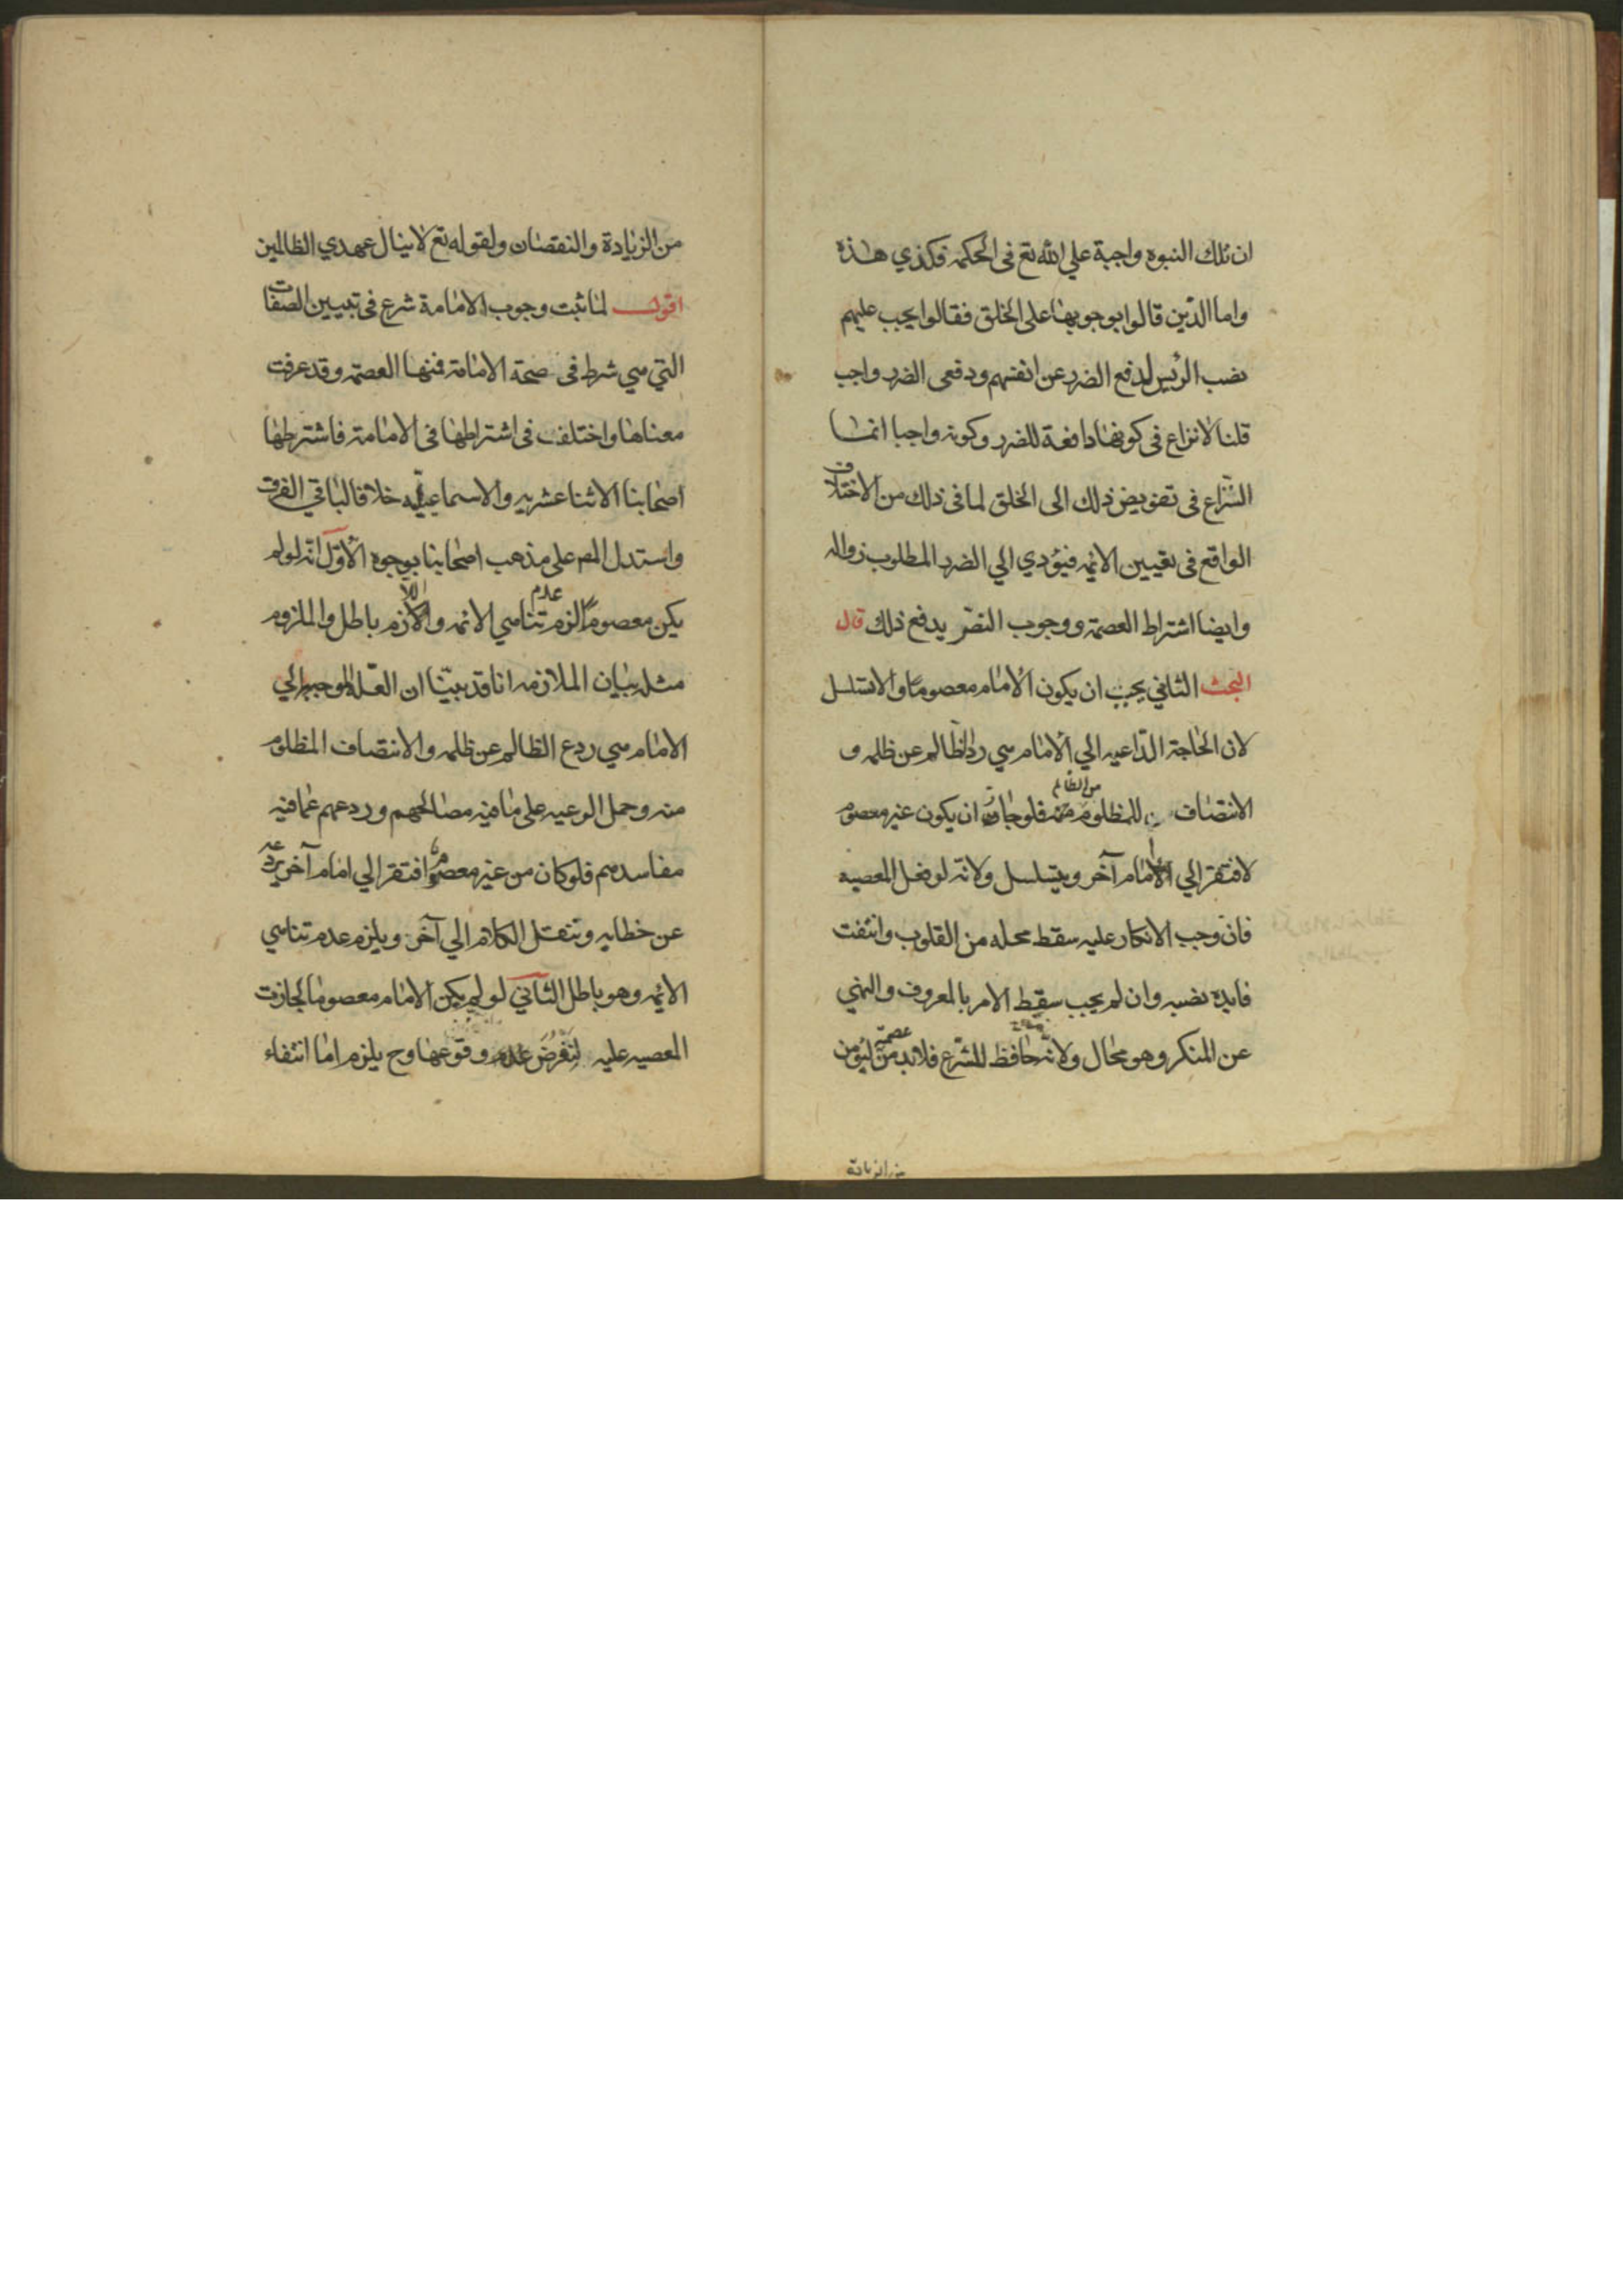 ان تلك النبوه واجبة علي الله تع في الحكمه فكذي هذه
واما الذين قالوا بوجوبها على الخلق فقالوا يجب عليهم
نصب الرئيس لدفع الضرر عن انفسهم ودفعى الضرر واجب
قلنا لا نزاع في كونها دافعة للضرر وكونه واجبا انما
النزاع في تفويض ذلك الى الخلق لما في ذلك من الاختلاف
الواقع في تعيين الائمه فيؤدي الي الضرر المطلوب زواله
وايضا اشتراط العصمة ووجوب النص يدفع ذلك قال
البحث الثاني يجب ان يكون الامام معصوما والا تسلسل
لان الحاجة الداعيه الي الامام هي رد الظالم عن ظلمه و
من الظالم
الانتصاف للمظلوم منه فلو جاز ان يكون غير معصوم
لافتقر الي امام آخر ويتسلسل ولانه لو فعل المعصيه
فان وجب الانكار عليه سقط محله من القلوب وانتفت
فايدة نصبه وان لم يجب سقط الامر بالمعروف والنهي
عن المنكر وهو محال ولانه حافظ للشرع فلابد من عصمته ليؤمن
من الزيادة
من الزيادة والنقصان ولقوله تع لا ينال عهدي الظالمين
اقول لما ثبت وجوب الامامة شرع في تبيين الصفات
التي هي شرط في صحة الامامة فمنها العصمة وقد عرفت
معناها واختلف في اشتراطها في الامامة فاشترطها
اصحابنا الاثنا عشريه والاسماعيليه خلافا لباقي الفرق
واستدل المص على مذهب اصحابنا بوجوه الاول انه لو لم
يكن معصوما لزم عدم تناهي الائمه واللازم باطل والملزوم
مثله بيان الملازمه انا قد بينا ان العلة الموجبه الي
الامام هي ردع الظالم عن ظلمه والانتصاف المظلوم
منه وحمل الرعيه على ما فيه مصالحهم وردعهم عما فيه
مفاسدهم فلو كان من غير معصوم افتقر الي امام آخر يردعه
عن خطايه وتنقل الكلام الي آخر ويلزم عدم تناهي
الائمه وهو باطل الثاني لو لم يكن الامام معصوما لجازت
المعصيه عليه لنفرض وقوعها وح يلزم اما انتفاء